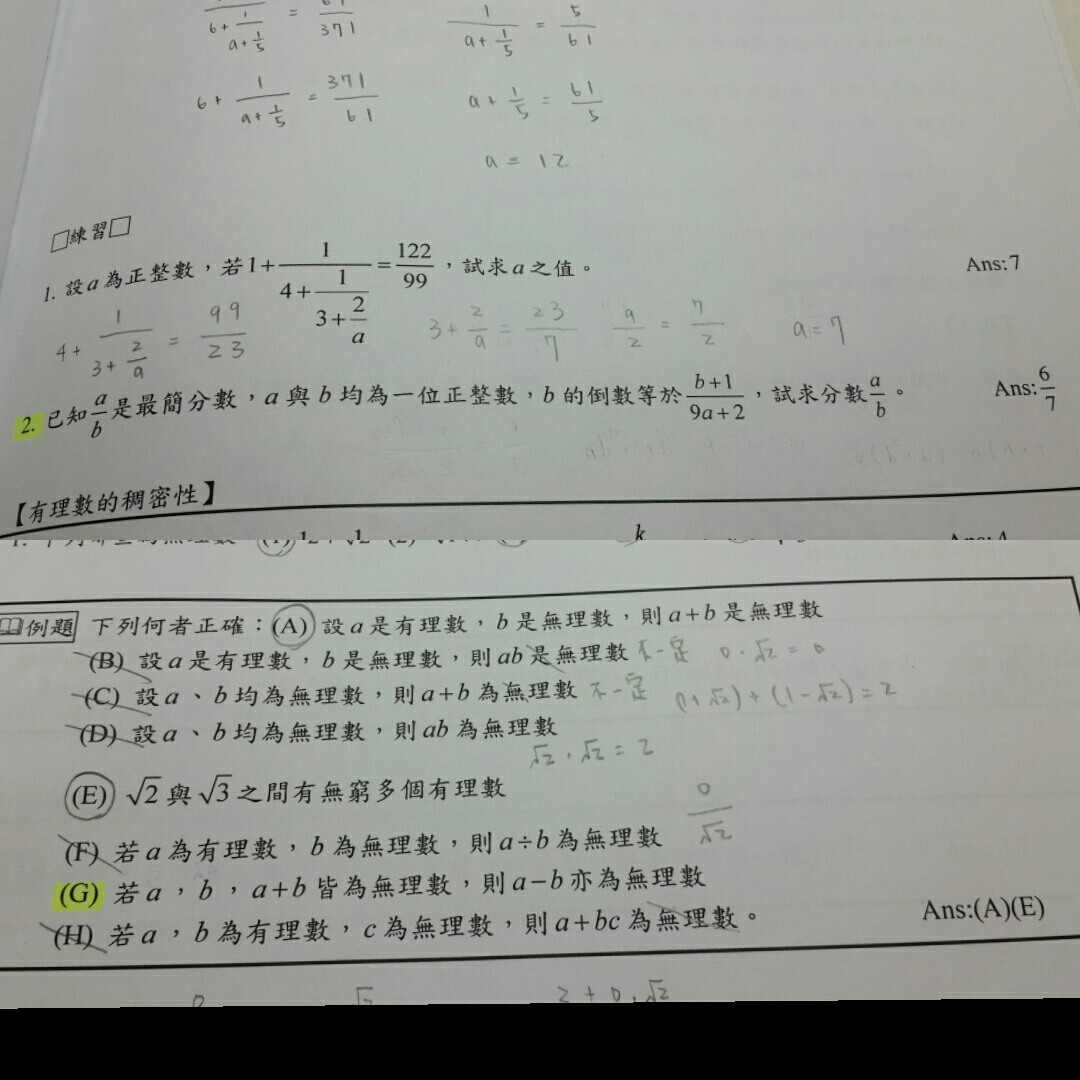 6+1/(a+1/5) = 61/371   1/(a+1/5) = 5/61
6+1/(a+1/5) = 371/61   a+1/5 = 61/5
a = 12
□練習□
1. 設a為正整數，若1+1/(4+1/(3+2/a))=122/99，試求a之值。 Ans:7
4+1/(3+2/a) = 99/23   3+2/a = 23/7   a/2 = 7/2   a=7
2. 已知a/b是最簡分數，a與b均為一位正整數，b的倒數等於(b+1)/(9a+2)，試求分數a/b。 Ans:6/7
【有理數的稠密性】
k
例題 下列何者正確：(A) 設a是有理數，b是無理數，則a+b是無理數
(B) 設a是有理數，b是無理數，則ab是無理數 不一定 0·√2=0
(C) 設a、b均為無理數，則a+b為無理數 不一定 (1+√2)+(1-√2)=2
(D) 設a、b均為無理數，則ab為無理數
√2·√2=2
(E) √2與√3之間有無窮多個有理數
(F) 若a為有理數，b為無理數，則a÷b為無理數 0/√2
(G) 若a，b，a+b皆為無理數，則a−b亦為無理數
(H) 若a，b為有理數，c為無理數，則a+bc為無理數。 Ans:(A)(E)
2+0·√2